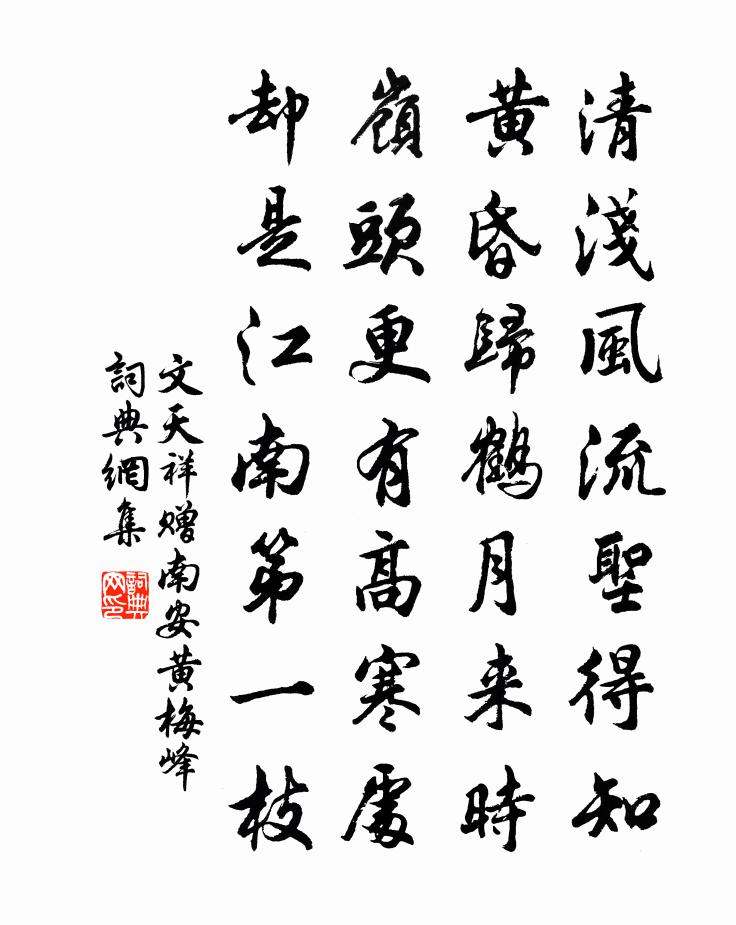 清淺風流聖得知
黄昏歸鶴月来時
嶺頭更有高寒處
却是江南第一枝
文天祥贈南安黄梅峰
詞典網集
詞典網印